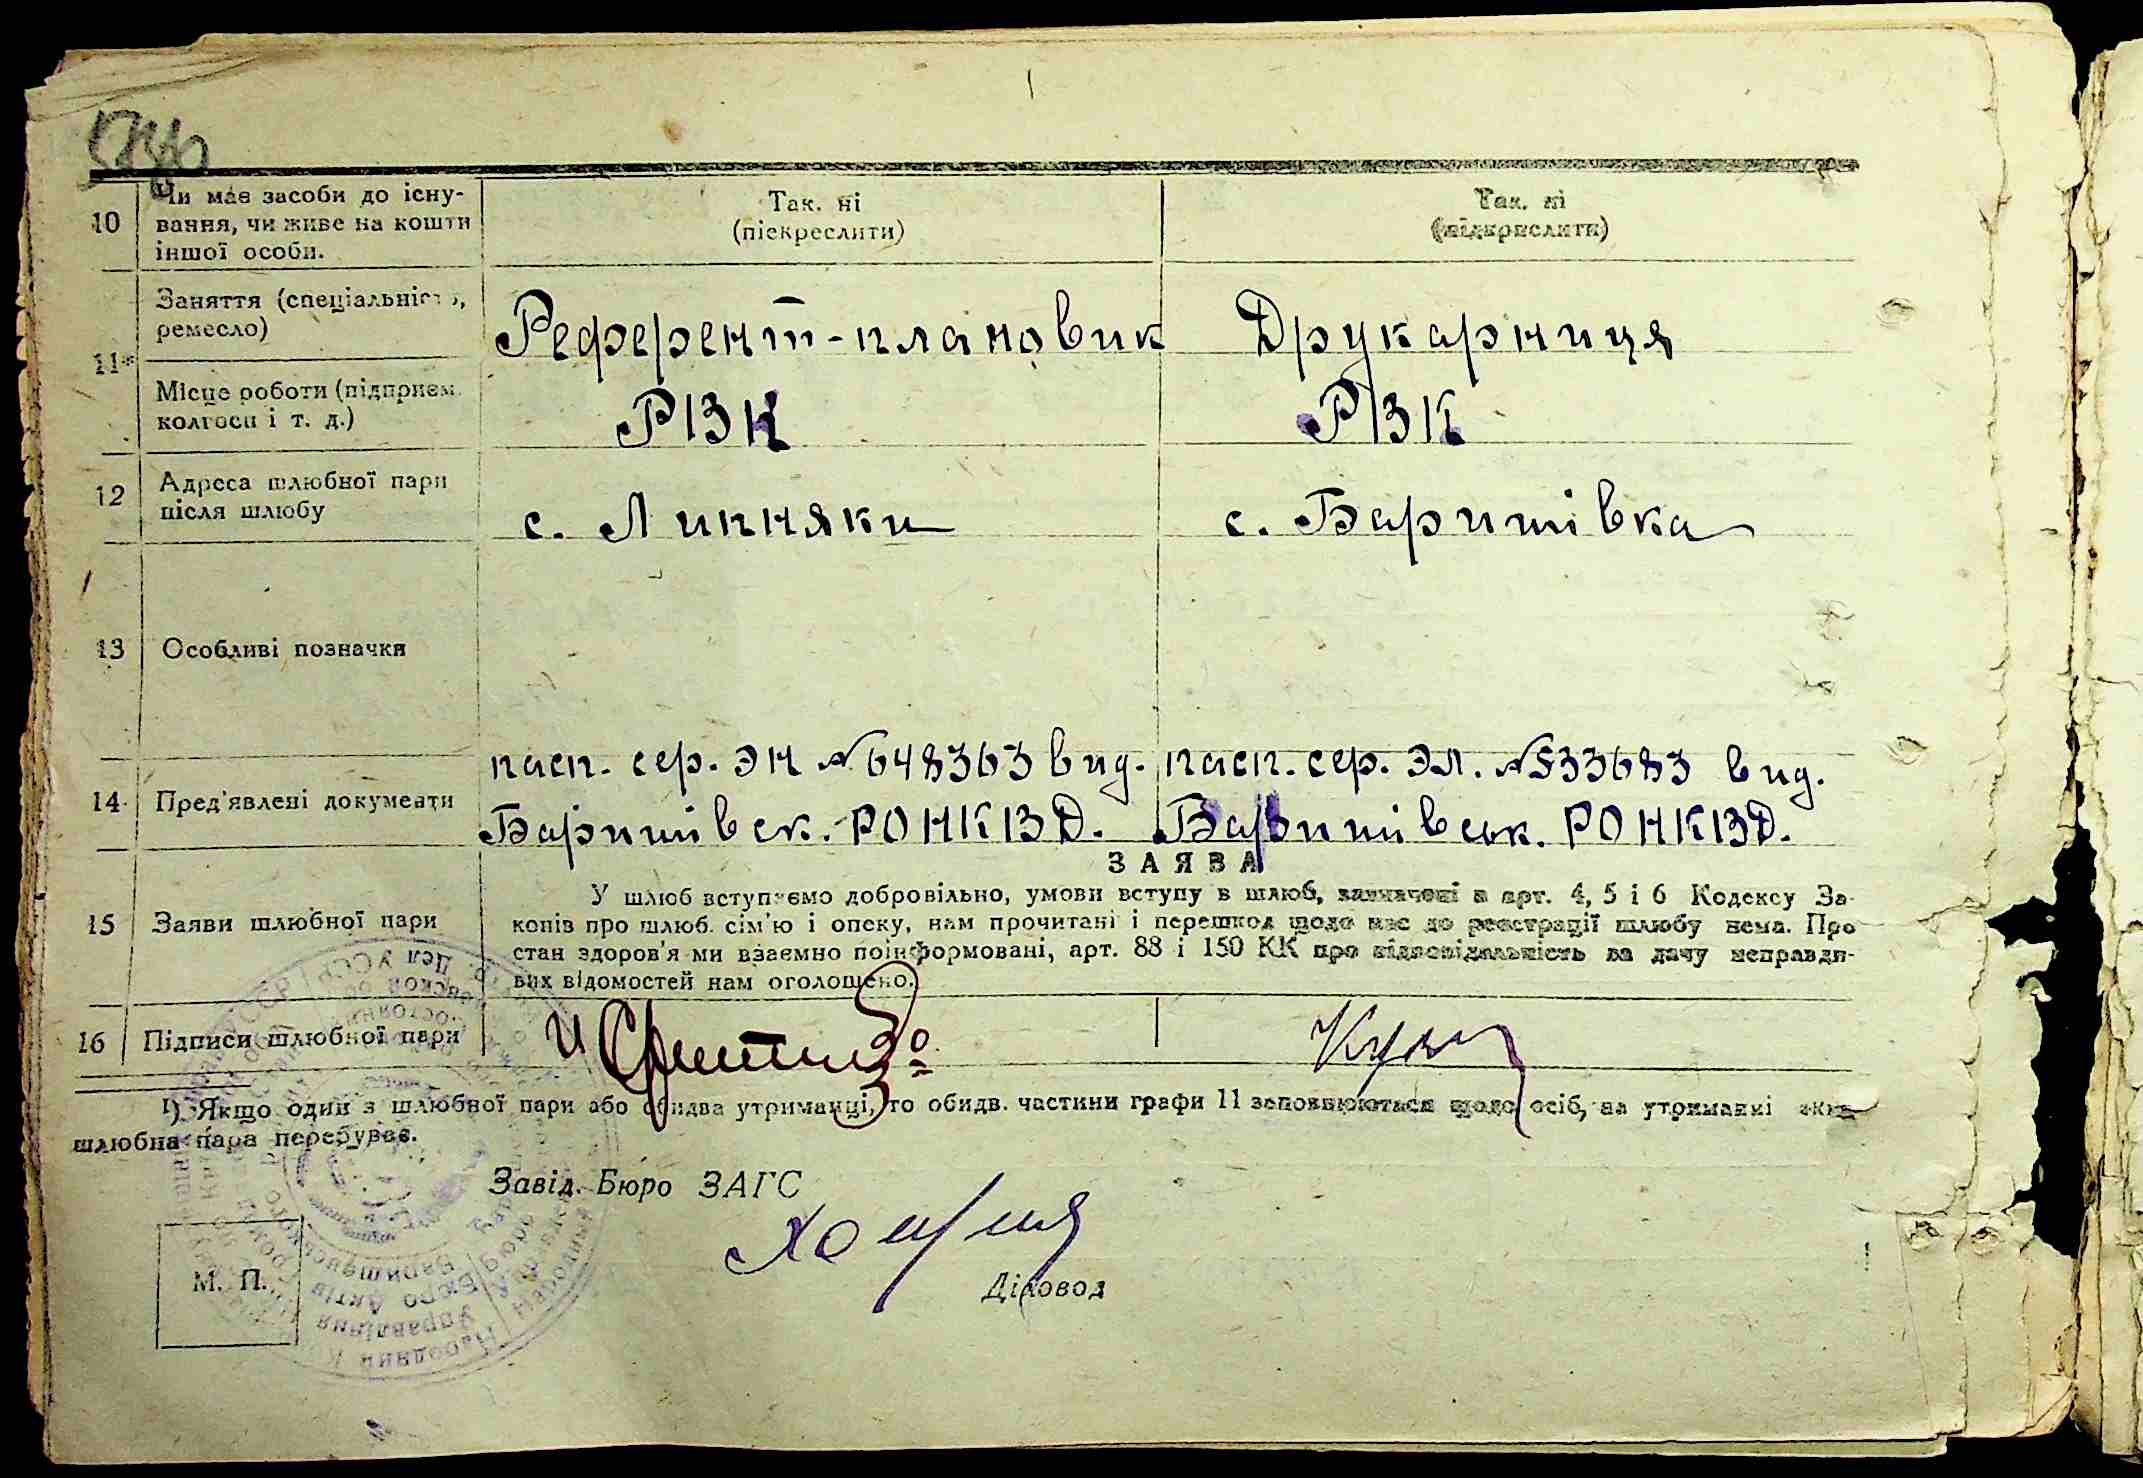 10 Чи має засоби до існу-
вання, чи живе на кошти
іншої особи.
Так. ні
(піекреслити)
Так. ні
(підкрислити)
11*
Заняття (спеціальність,
ремесло)
Референт-плановик
Друкарниця
Місце роботи (підприєм.
колгосп і т. д.)
РЗК
РЗК
12 Адреса шлюбної пари
після шлюбу
с. Липняки
с. Баришівка
13 Особливі позначки
14 Пред'явлені документи
пасп. сер. ЭН №648363 вид.
Баришівск. РО НКВД.
пасп. сер. ЭЛ. №533683 вид.
Баришівськ. РО НКВД.
ЗАЯВА
15 Заяви шлюбної пари
У шлюб вступаємо добровільно, умови вступу в шлюб, зазначені в арт. 4, 5 і 6 Кодексу За-
конів про шлюб. сім'ю і опеку, нам прочитані і перешкод щодо нас до реєстрації шлюбу нема. Про
стан здоров'я ми взаємно поінформовані, арт. 88 і 150 КК про відповідальність за дачу неправди-
вих відомостей нам оголошено.
16 Підписи шлюбної пари
1) Якщо один з шлюбної пари або обидва утриманці, то обидв. частини графи 11 заповнюються щодо осіб, на утриманні яких
шлюбна пара перебуває.
Завід. Бюро ЗАГС
Діловод
М. П.